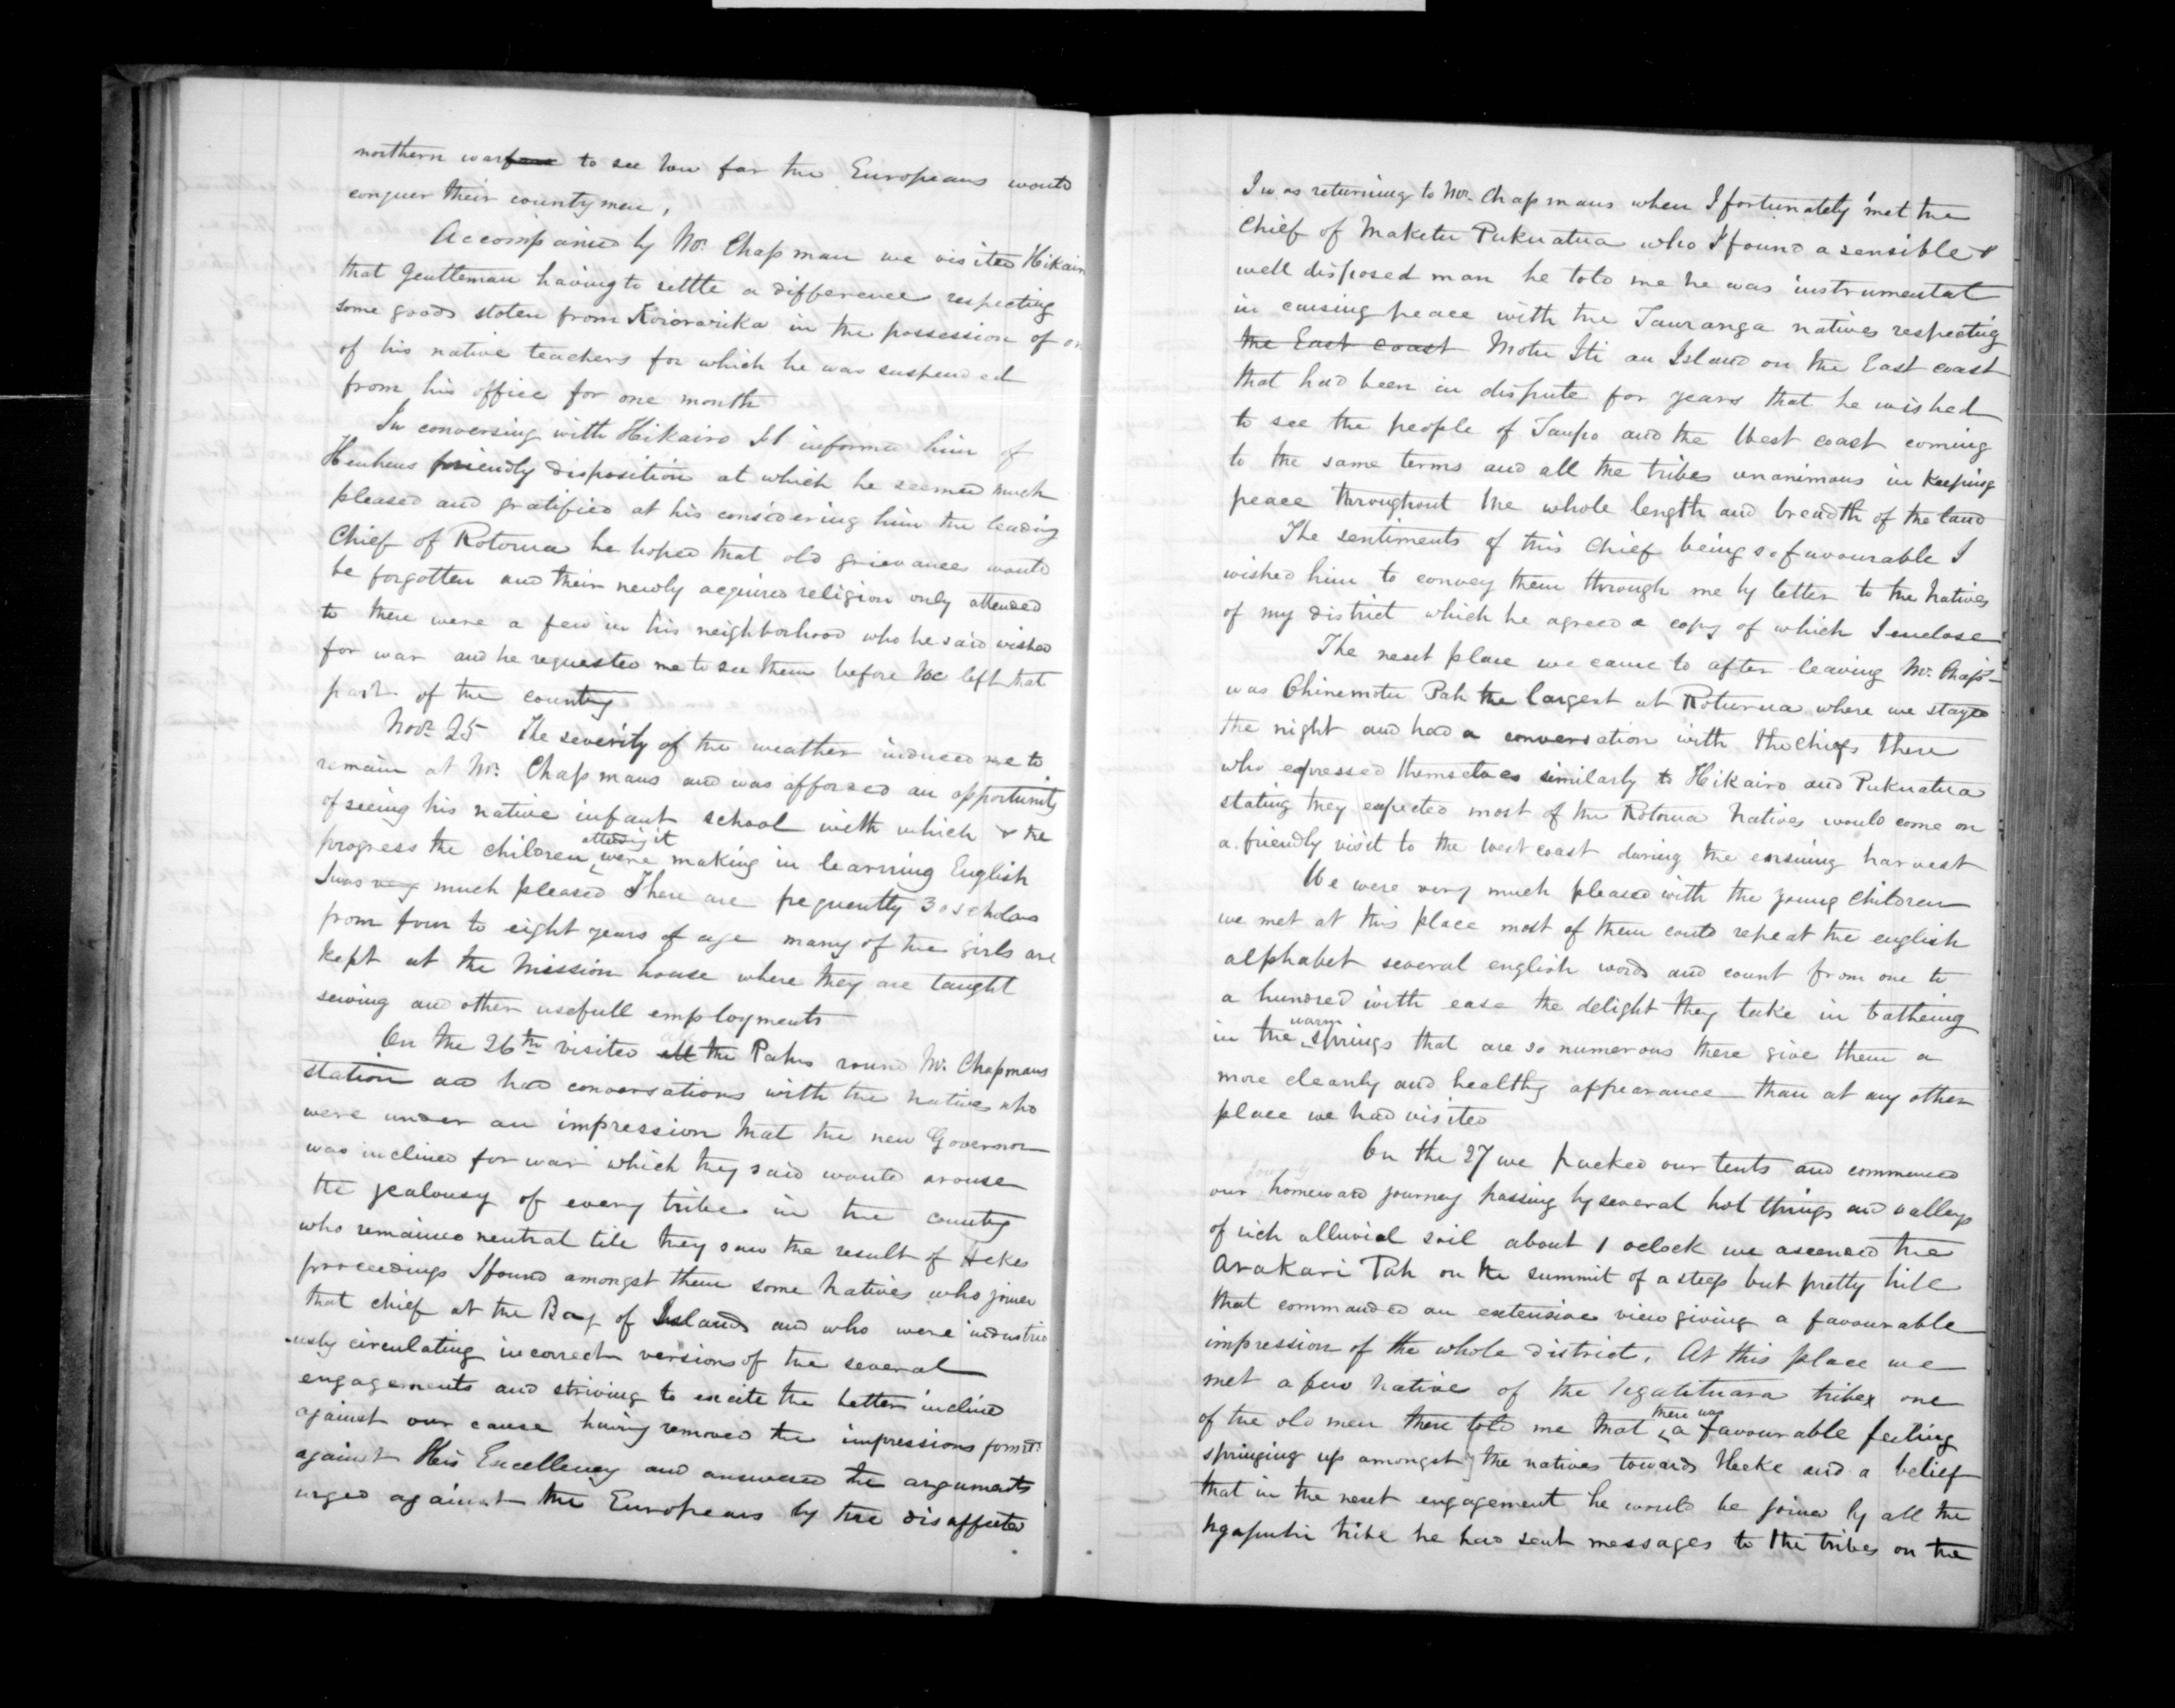 northern war to see how far the Europeans would
conquer their countrymen,
Accompanied by Mr. Chapman we visited Hikairo
that Gentleman having to settle a difference respecting
some goods stolen from Kororarika in the possession of on
of his native teachers for which he was suspended
from his office for one month
In conversing with Hikairo I informed him of
Heuheus friendly disposition at which he seemed much
pleased and gratified at his considering him the leading
Chief of Rotorua he hoped that old grievances would
be forgotten and their newly acquired religion only attended
to there were a few in his neighborhood who he said wished
for war and he requested me to see them before we left that
part of the country
Novr. 25 The severity of the weather induced me to
remain at Mr. Chapmans and was afforded an opportunity
of seeing his native infant school with which & the
progress the children attending it were making in learning English
I was very much pleased There are frequently 30 scholars
from four to eight years of age many of the girls are
kept at the Mission house where they are taught
sewing and other usefull employments
On the 26th visited all the Pahs round Mr. Chapmans
station and had conversations with the natives who
were under an impression that the new Governor
was inclined for war which they said would arouse
the jealousy of every tribe in the country
who remained neutral till they saw the result of Hekes
proceedings I found amongst them some Natives who joined
that chief at the Bay of Islands and who were industrio
-usly circulating incorrect versions of the several
engagements and striving to excite the better inclined
against our cause having removed the impressions formed
against His Excellency and answered the arguments
urged against the Europeans by the disaffected
I was returning to Mr. Chapmans when I fortunately met the
Chief of Maketu Pukuatua who I found a sensible &
well disposed man he told me he was instrumental
in causing peace with the Tauranga natives respecting
the East coast Motu Iti an Island on the East coast
that had been in dispute for years that he wished
to see the people of Taupo and the West coast coming
to the same terms and all the tribes unanimous in keeping
peace throughout the whole length and breadth of the land
The sentiments of this Chief being so favourable I
wished him to convey them through me by letter to the Natives
of my district which he agreed a copy of which I enclose
The next place we came to after leaving Mr. Chap-
was Ohinemotu Pah the largest at Roturua where we stayed
the night and had a conversation with the chiefs there
who expressed themselves similarly to Hikairo and Pukuatua
stating they expected most of the Rotorua Natives would come on
a friendly visit to the west coast during the ensuing harvest
We were very much pleased with the young children
we met at this place most of them could repeat the english
alphabet several english words and count from one to
a hundred with ease the delight they take in batheing
in the warm springs that are so numerous there give them a
more cleanly and healthy appearance than at any other
place we had visited
On the 27 we packed our tents and commenced
our homeward journey passing by several hot springs and valleys
of rich alluvial soil about 1 oclock we ascended the
Arakari Pah on the summit of a steep but pretty hill
that commanded an extensive view giving a favourable
impression of the whole district. At this place we
met a few native of the Ngatituara tribe one
of the old men there told me that there was a favourable feeling
springing up amongst the natives towards Heeke and a belief
that in the next engagement he would be joined by all the
Ngapuhi tribe he had sent messages to the tribes on the